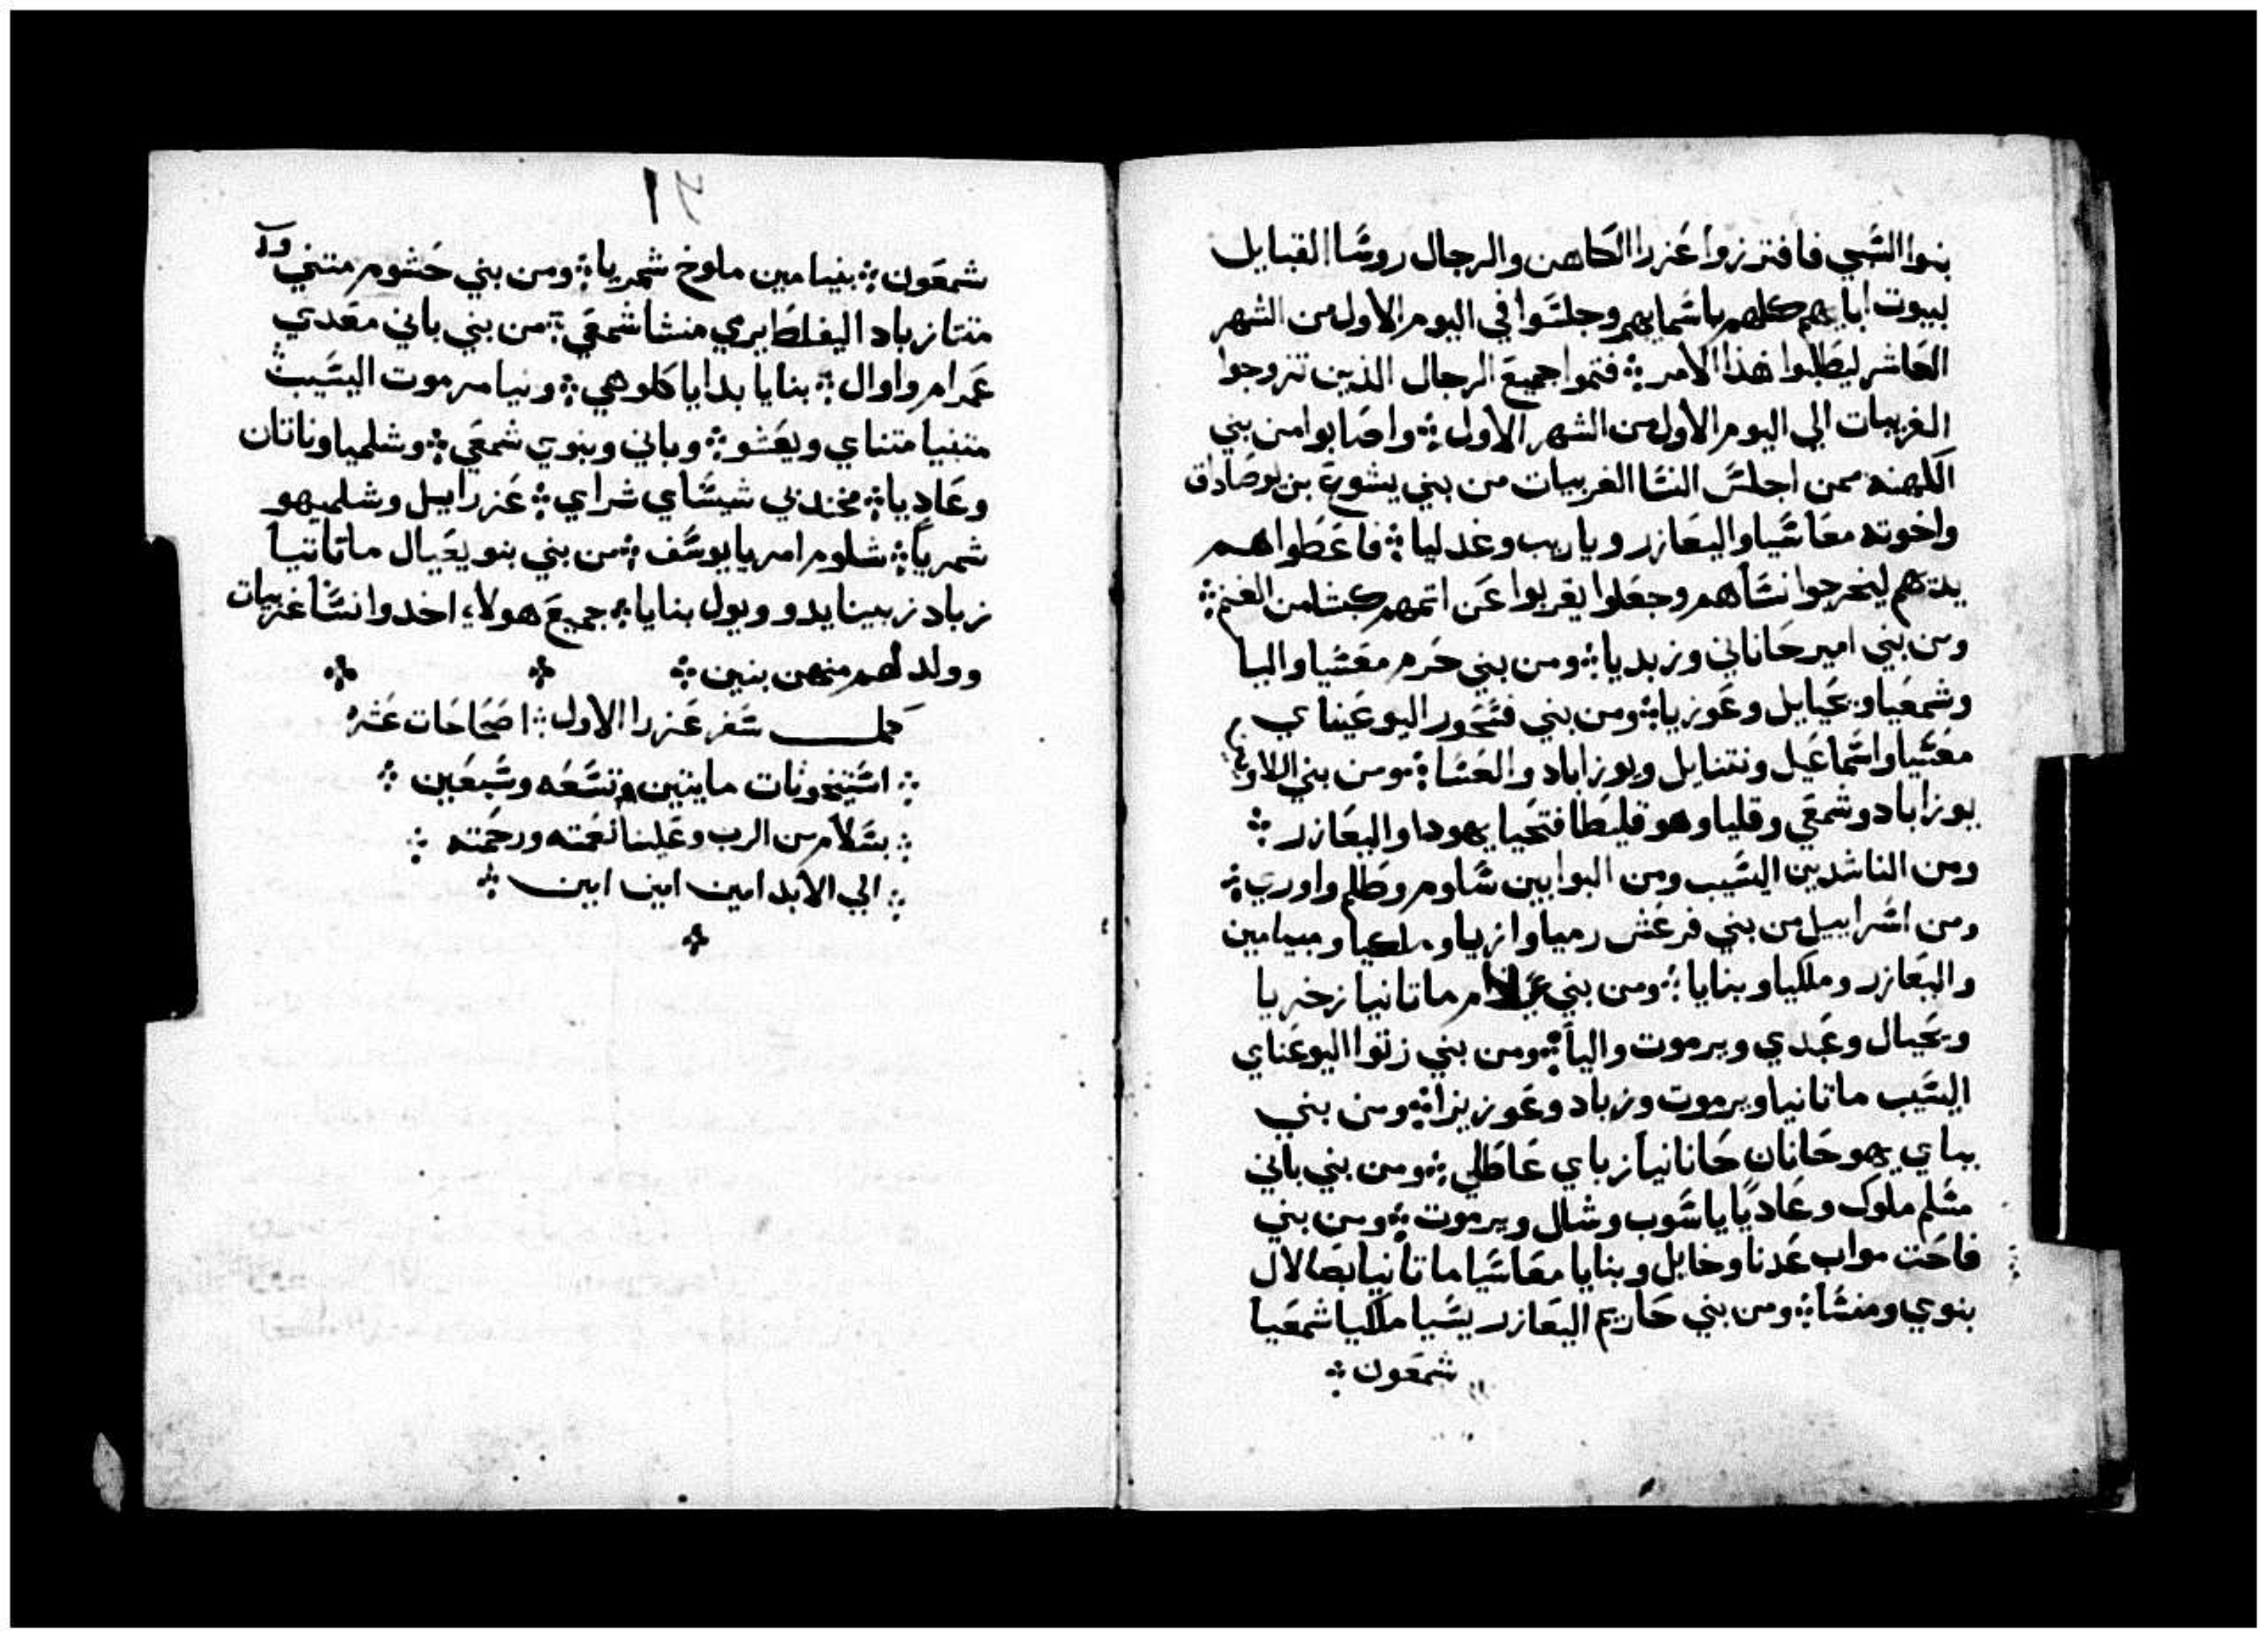 بنوا السبي فافترزوا عزرا الكاهن والرجال روسا القبايل
لبيوت ابايهم كلهم باسمايهم وجلسوا في اليوم الاول من الشهر
العاشر ليطلبوا هذا الامر فتموا جميع الرجال الذين تزوجوا
الغريبات الي اليوم الاول من الشهر الاول واصابوا من بني
الكهنه ممن اجلس النسا الغريبات من بني يشوع بن يوصاداق
واخوته معاسيا واليعازر وياريب وغدليا فاعطوا هم
يدهم ليخرجوا نساهم وجعلوا يقربوا عن اثمهم كبشا من الغنم
ومن بني امير حاناني وزبديا ومن بني حرم معسيا واليا
وشمعيا ويحيايل وعوزيا ومن بني فسحور اليوعيناي
معسيا واسماعيل ونتنايل ويوزاباد والعسا ومن بني اللاو
يوزاباد وشمعي وقليا وهو قليطا فتحيا يهودا واليعازر
ومن الناشدين اليسيب ومن البوابين سالوم وطلم واوري
ومن اسراييل من بني فرعش رميا وازيا وملكيا وميامين
واليعازر وملكيا وبنايا ومن بني ماتانيا زخريا
ويحيال وعبدي ويرموت واليا ومن بني زتوا اليوعناي
اليسيب ماتانيا ويرموت وزباد وعوزيزا ومن بني
بباي يهوحانان حانانيا زباي عاطلي ومن بني باني
مسلم ملوك وعاديا ياسوب وشال ويرموت ومن بني
فاحت مواب عدنا وخايل وبنايا معاسيا ماتانيا بصالال
بنوي ومنسا ومن بني حاريم اليعازر يسيا ملكيا شمعيا
شمعون
٩١
شمعون بنيامين ماوخ شمريا ومن بني حشوم متني
متتا زباد اليفلط ايري منشا شمعي من بني باني معدي
عمرام واوال بنايا بدايا كلوهي ونيا مرموت اليسيب
متنيا متناي ويعشو وباني وبنوي شمعي وشلميا وناتان
وعاديا مخندبي شيساي شراي عزراييل وشلميهو
شمريا شلوم امريا يوسف من بني بنو يعيال ماتاتيا
زباد زبينا يدو ويول بنايا جميع هولاء اخدوا نسا غريبات
وولد لهم منهن بنين
كمل سفر عزرا الاول اصحاحات عشره
استيخونات مايتين وتسعه وسبعين
بسلام من الرب وعلينا نعمته ورحمته
الي الابد امين امين امين